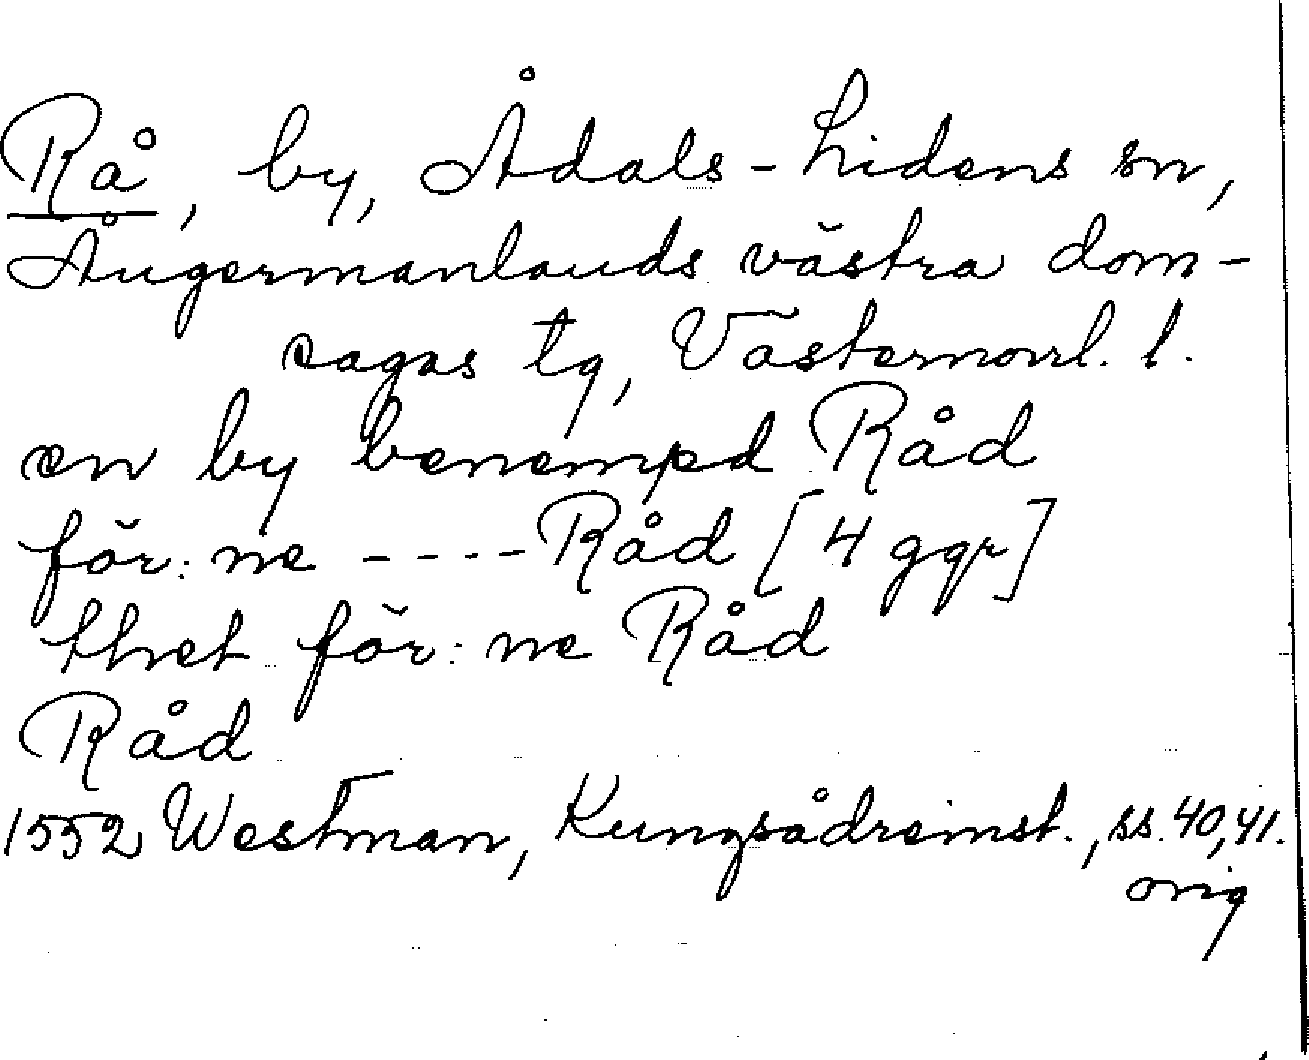 Rå, by, Ådals-Lidens sn,
Ångermanlands västra dom-
sagas tg, Västernorrl. l.
en by benempd Råd
för: ne ---- Råd [4 ggr]
thet för: ne Råd
Råd
1552 Westman, Kungsådreinst., ss. 40, 41.
orig